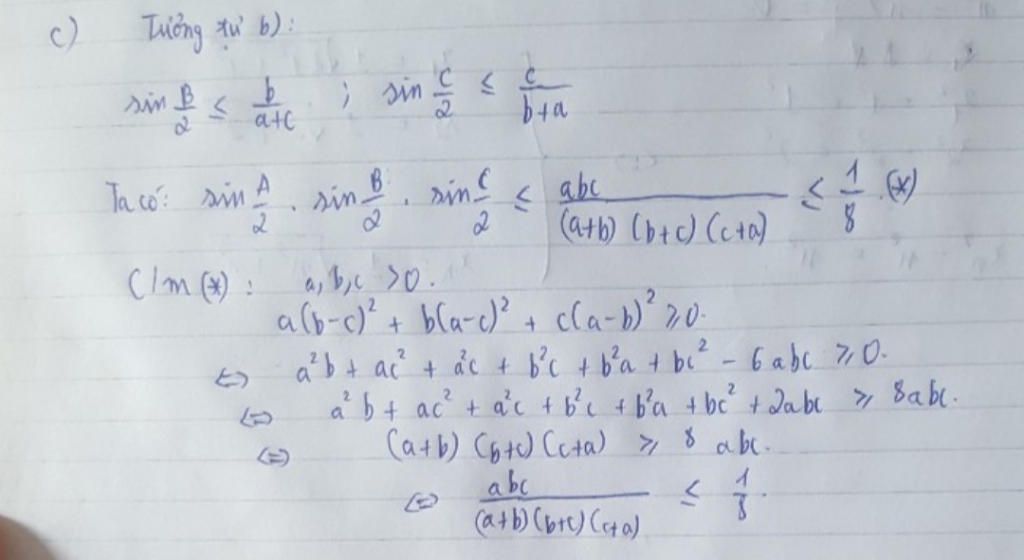 c) Tương tự b):
sin B/2 ≤ b/(a+c) ; sin C/2 ≤ c/(b+a)
Ta có: sin A/2 . sin B/2 . sin C/2 ≤ abc/((a+b)(b+c)(c+a)) ≤ 1/8 .(*)
C/m (*): a, b, c > 0.
a(b-c)² + b(a-c)² + c(a-b)² ≥ 0.
⇔ a²b + ac² + a²c + b²c + b²a + bc² - 6abc ≥ 0.
⇔ a²b + ac² + a²c + b²c + b²a + bc² + 2abc ≥ 8abc.
⇔ (a+b)(b+c)(c+a) ≥ 8 abc.
⇔ abc/((a+b)(b+c)(c+a)) ≤ 1/8.